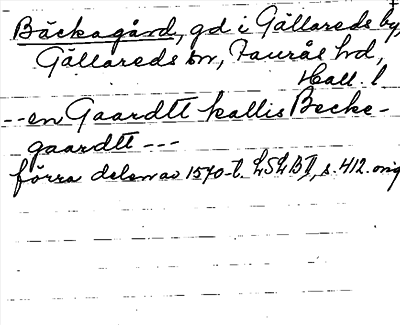 Bäckagård, gd i Gällareds by,
Gällareds sn, Faurås hd,
Hall. l
--en Gaardtt kallis Becke-
gaardtt ---
förra delen av 1570-t. LSLB II, s. 412. orig